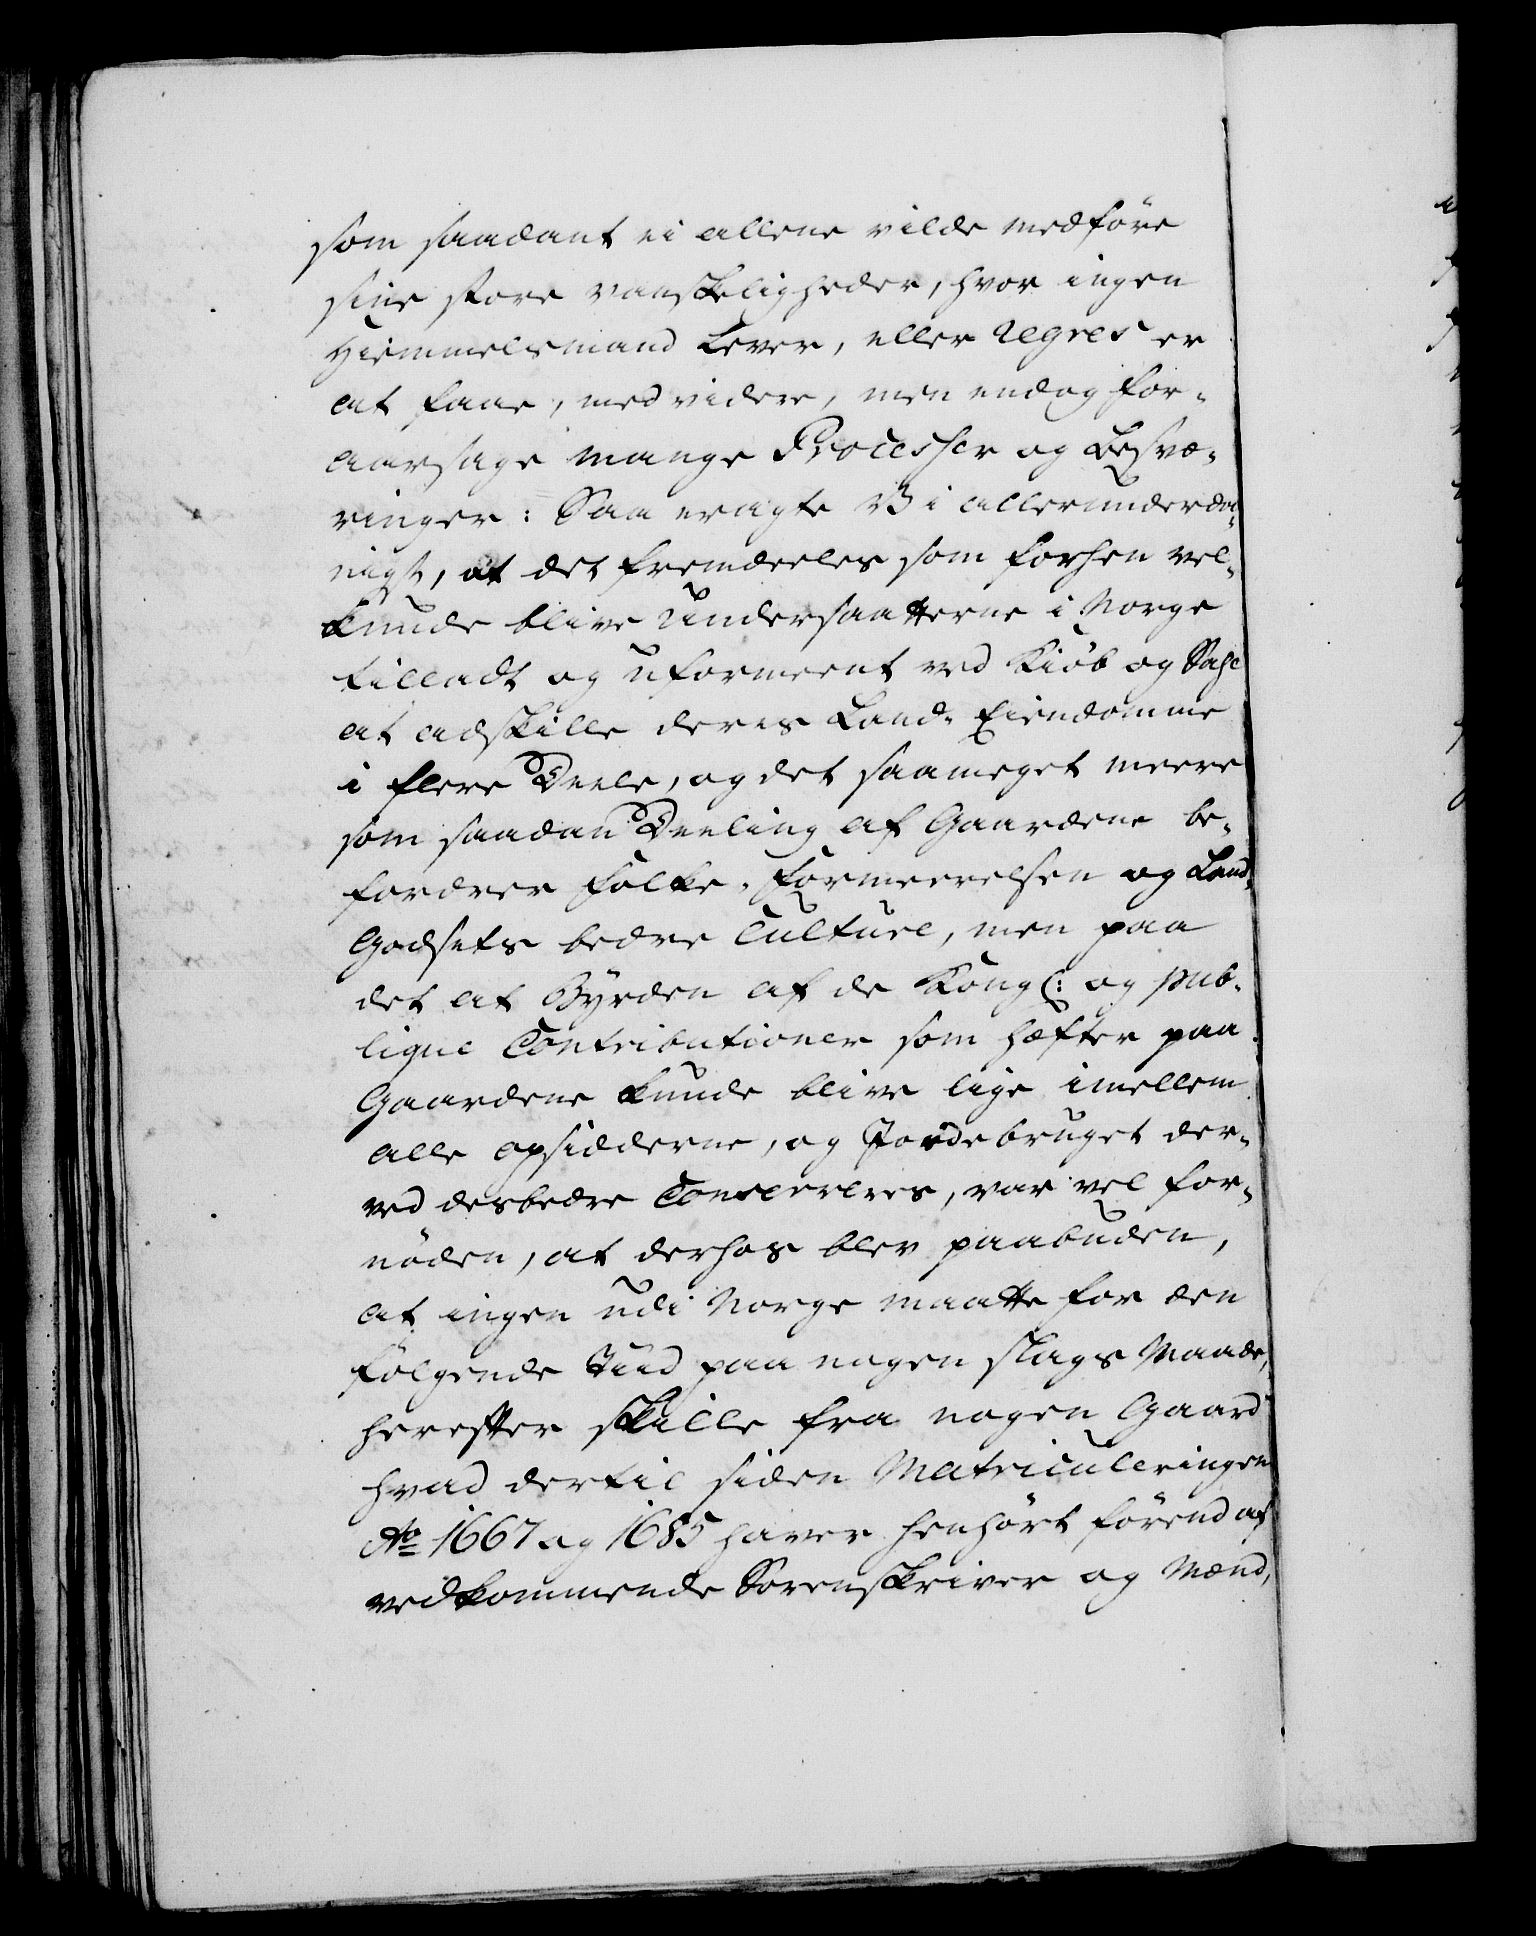 som saadant ei allene vilde medføre
sine store vanskeligheder, hvor ingen
Hiemmelsmand Lever, eller Regres er
at faae, med videre, men endog for-
aarsage mange Processer og Besvæ-
ringer: Saa eragte Vi allerunderdæ-
nigst, at det fremdeeles som forhen vel
kunde blive Undersaatterne i Norge
tilladt og uformeent ved Kiøb og Salg
at adskille deres Land-Eiendomme
i flere Deele, og det saameget meere
som saadan Deeling af Gaardene be-
fordrer Folke-Formeerelsen og Land-
Godsets bedre Culture, men paa
det at Byrden af de Kongl: og pub-
lique Contributioner som hæfter paa
Gaardene kunde blive lige imellem
alle opsidderne, og Jordebruget der-
ved desbedre Conserveres, var vel for-
nøden, at derhos blev paabuden,
at ingen udi Norge maatte for den
følgende Tiid paa nogen slags Maade,
herefter skille fra nogen Gaard
hvad dertil siden Matriculeringen
Ao 1667 og 1685 haver henhørt førend af
vedkommende Sorenskriver og Mænd,